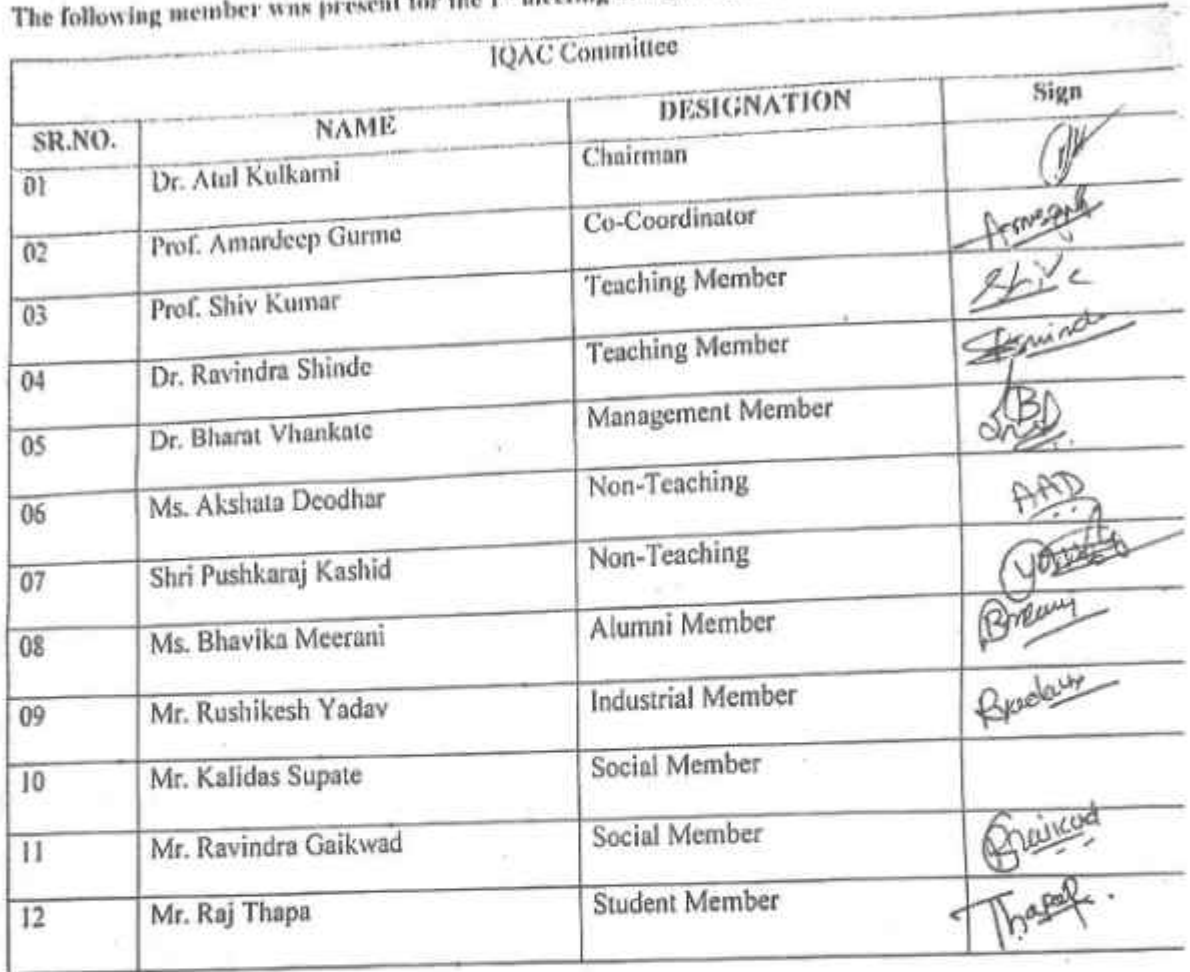 The following member was present for the 1st meeting
IQAC Committee
SR.NO. NAME DESIGNATION Sign
01 Dr. Atul Kulkarni Chairman
02 Prof. Amardeep Gurme Co-Coordinator
03 Prof. Shiv Kumar Teaching Member
04 Dr. Ravindra Shinde Teaching Member
05 Dr. Bharat Vhankate Management Member
06 Ms. Akshata Deodhar Non-Teaching AAD
07 Shri Pushkaraj Kashid Non-Teaching
08 Ms. Bhavika Meerani Alumni Member
09 Mr. Rushikesh Yadav Industrial Member
10 Mr. Kalidas Supate Social Member
11 Mr. Ravindra Gaikwad Social Member
12 Mr. Raj Thapa Student Member